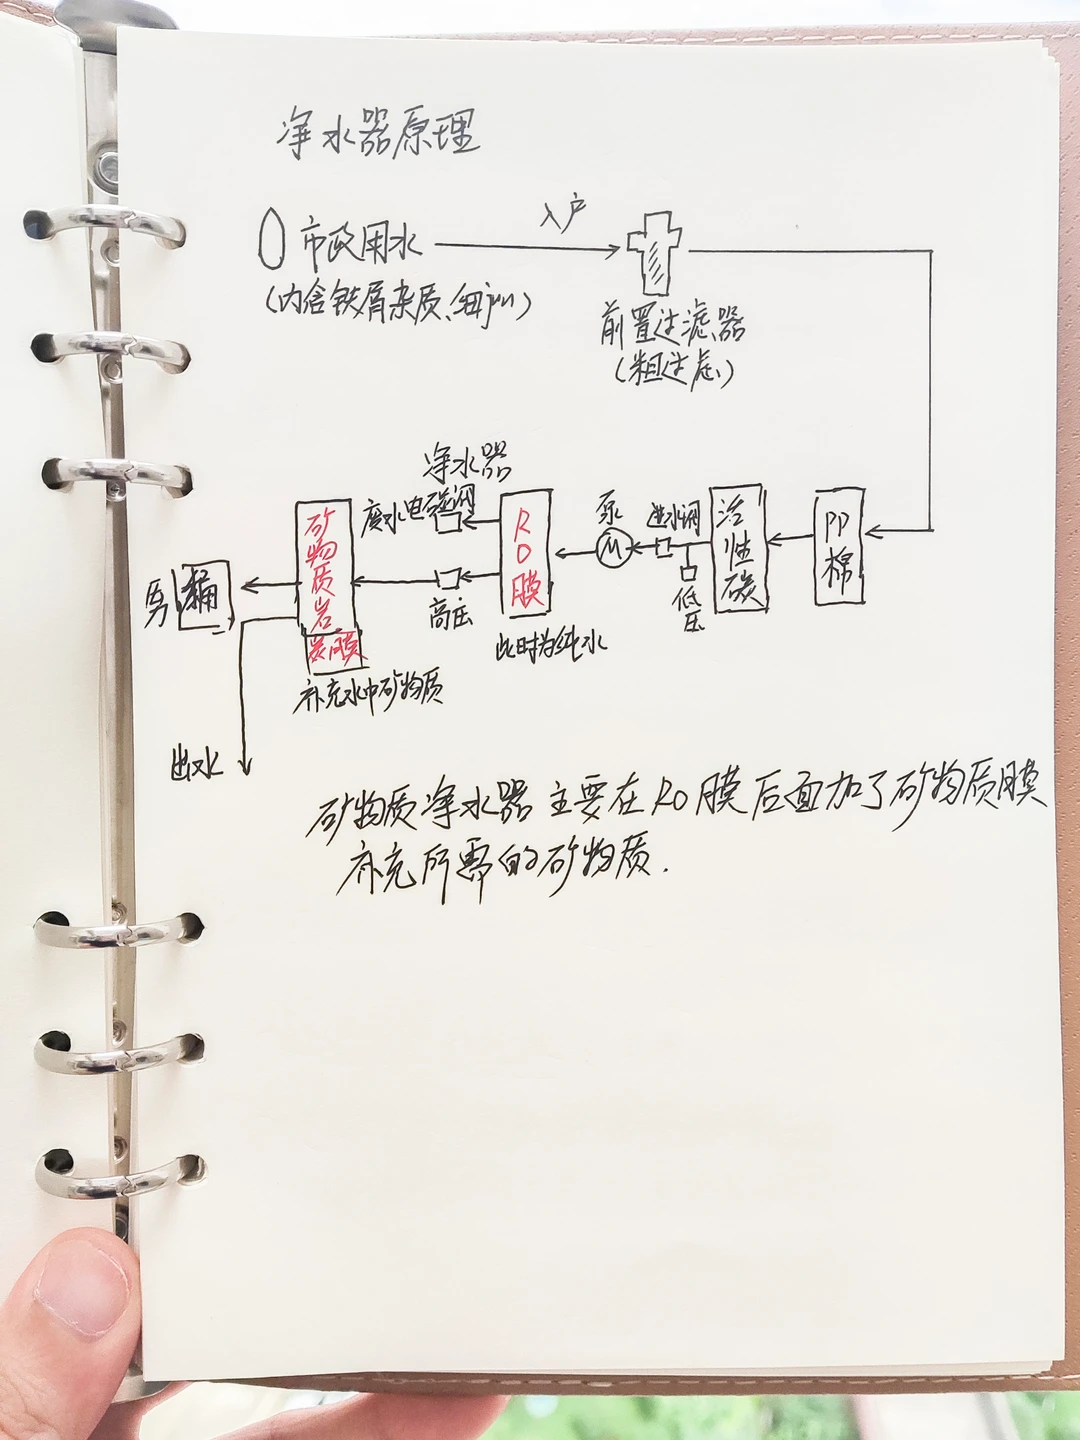 净水器原理
市政用水
入户
(内含铁屑杂质、细
前置过滤器
(粗过虑)
净水器
废水电磁阀
RO膜
泵
M
进水阀
低压
活性碳
PP棉
高压
此时为纯水
矿物质岩
炭膜
补充水中矿物质
桶
出水
矿物质净水器主要在RO膜后面加了矿物质膜
补充所需的矿物质.